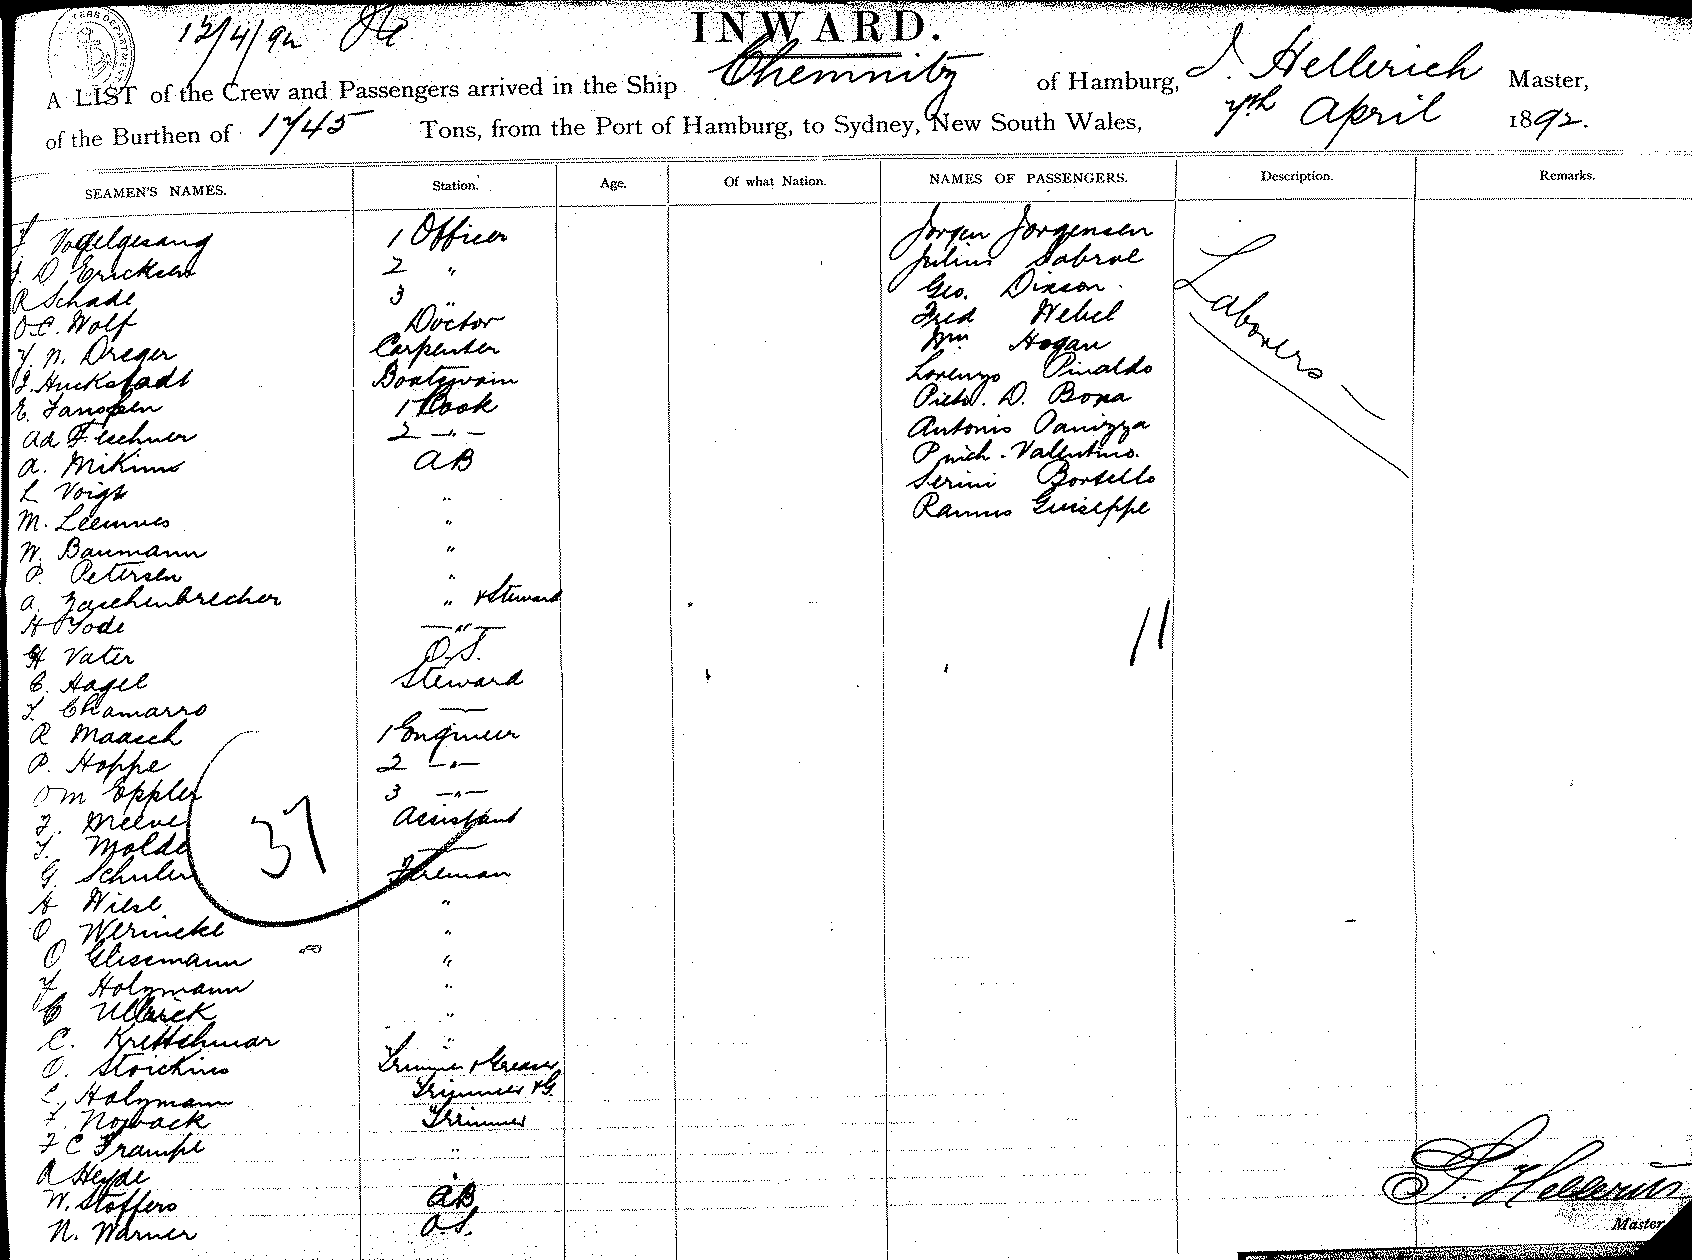 12/4/92
INWARD.
A LIST of the Crew and Passengers arrived in the Ship Chemnitz of Hamburg, J. Hellerich Master,
of the Burthen of 1745 Tons, from the Port of Hamburg, to Sydney, New South Wales, 7th April 1892.
SEAMEN'S NAMES. Station. Age. Of what Nation. NAMES OF PASSENGERS. Description. Remarks.
Vogelgesang 1 Officer Jorgen Jorgensen
D Ericksen 2 " Julius Sabroe
R Schade 3 " Geo. Dixson
O.C. Wolf Doctor Fred Webel
N. Dreger Carpenter Wm Hogan
J. Huckstadt Boatswain Lorenzo Pinaldo
E. Janssen 1 Cook Pietr. D. Bona
Ad Fleschner 2 -"- Antonio Panizza
A. Mikinus AB Valentino.
L Voigt " Serini Bortello
M. Leemves " Ramus Guiseppe
Laborers
W. Baumann "
P. Petersen "
A. Zaschenbrecher " & Steward
H Tode -"-
11
H Vater O.S.
C. Hagel Steward
F. Chamarro
R Maasch 1 Engineer
P. Hoppe 2 -"-
O M Eppler 3 -"-
F. Meeve Assistant
F. Molde
37
G. Schuler Fireman
H Wiese "
O Wernicke "
O Glissmann "
F Holzmann "
C Ullrick "
C. Krettshmar "
O. Stoickius Trimmer & Greaser
C. Holzmann Trimmer & G.
F. Nowack Trimmer
F C Trampe "
R Heyde "
W. Stoffers AB
N. Warner O.S.
J. Hellerich
Master